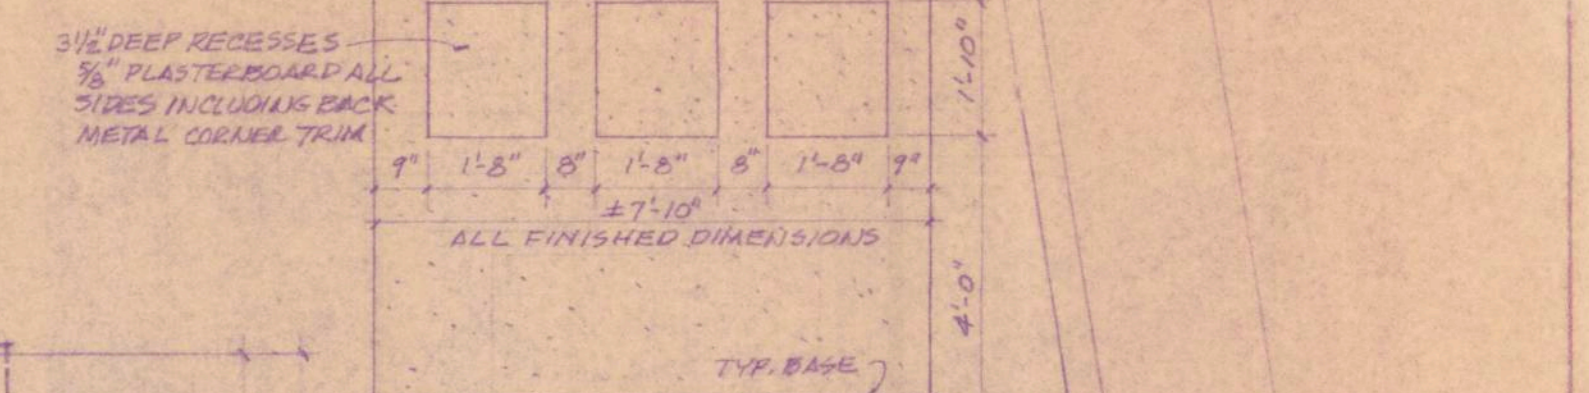 3½" DEEP RECESSES
⅝" PLASTERBOARD ALL
SIDES INCLUDING BACK
METAL CORNER TRIM
1'-10"
9" 1'-8" 8" 1'-8" 8" 1'-8" 9"
±7'-10"
ALL FINISHED DIMENSIONS
4'-0"
TYP. BASE